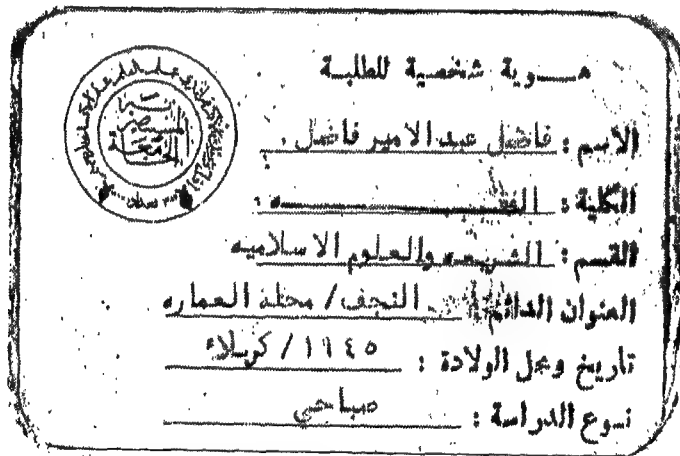 هـــوية شخصية للطلبة
الاسم : فاضل عبد الامير فاضل .
الكلية : الفقـــــــــــــه .
القسم : الشريعه والعلوم الاسلاميه
العنوان الدائم : النجف / محلة العماره
تاريخ ومحل الولادة : ١٩٤٥ / كربلاء
نـوع الدراسة : صباحي